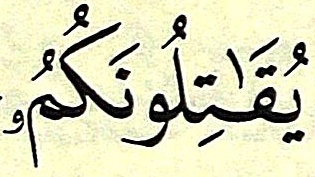 يُقَٰتِلُونَكُمُۥ